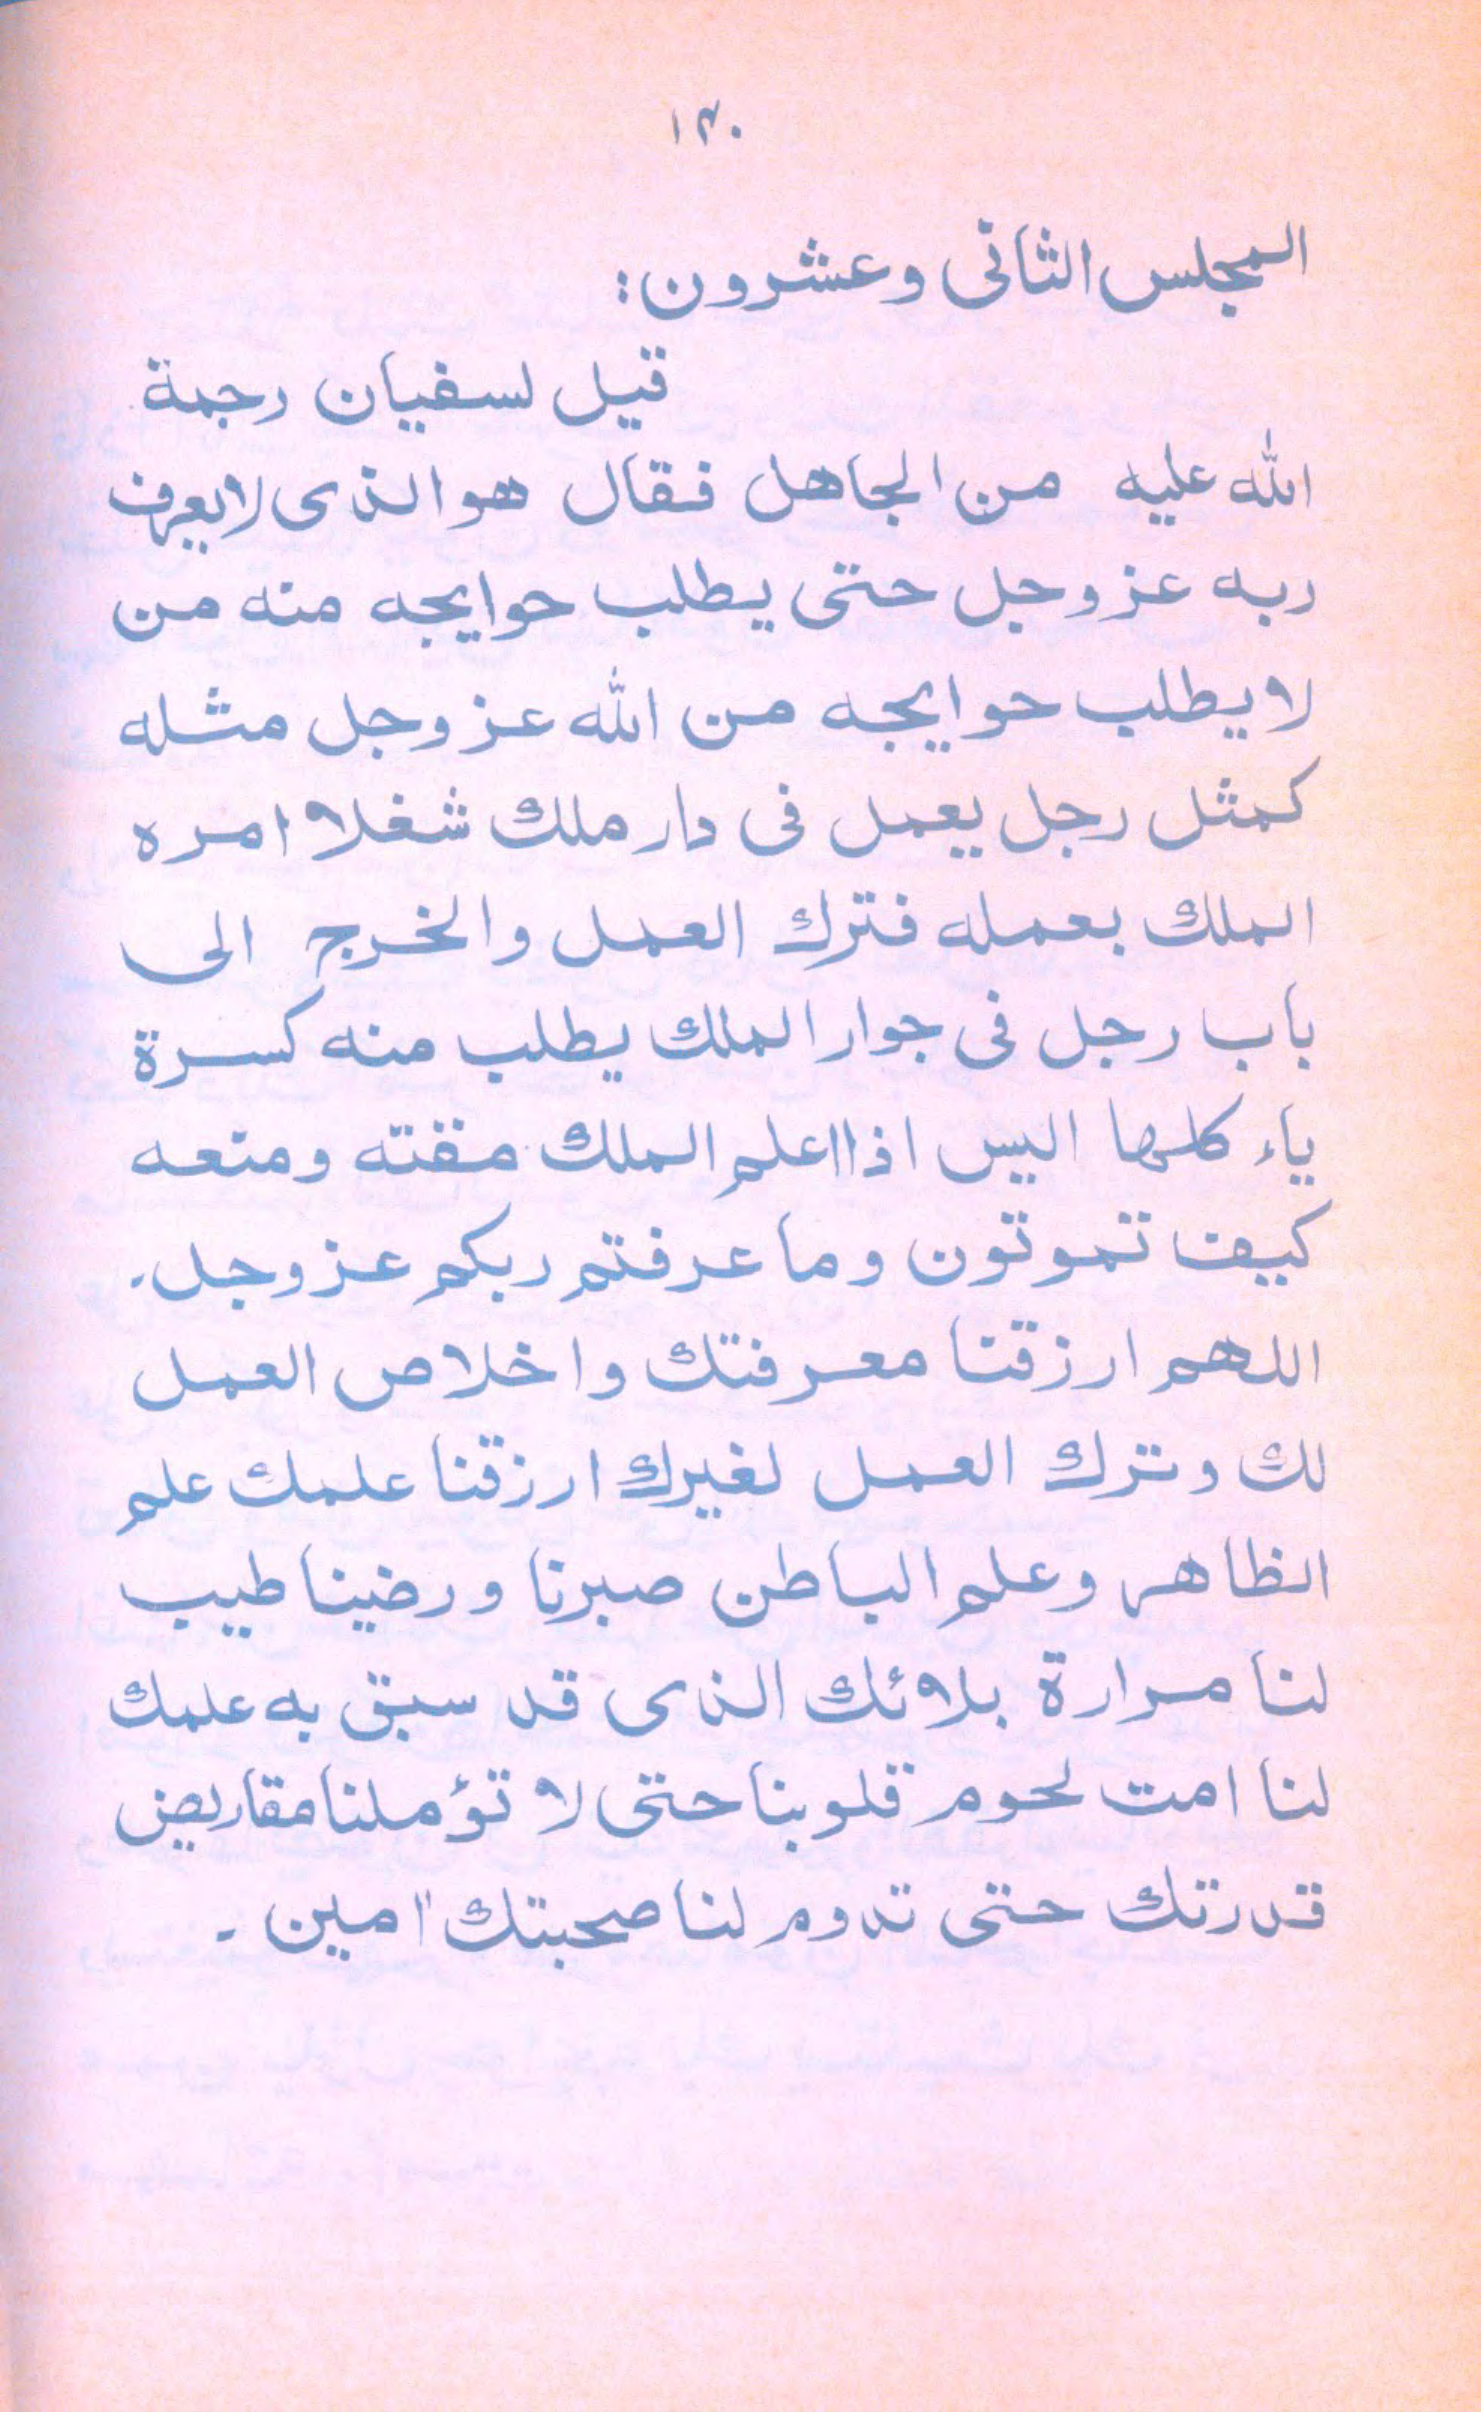 ١٣٠
المجلس الثانى وعشرون:
قيل لسفيان رحمة
الله عليه من الجاهل فقال هو الذى لا يعرف
ربه عز وجل حتى يطلب حوايجه منه من
لا يطلب حوايجه من الله عز وجل مثله
كمثل رجل يعمل فى دار ملك شغلا امره
الملك بعمله فترك العمل والخرج الى
باب رجل فى جوار الملك يطلب منه كسرة
ياء كلها اليس اذا اعلم الملك مقته ومنعه
كيف تموتون وما عرفتم ربكم عز وجل.
اللهم ارزقنا معرفتك واخلاص العمل
لك وترك العمل لغيرك ارزقنا علمك علم
الظاهر وعلم الباطن صبرنا ورضينا طيب
لنا مرارة بلائك الذى قد سبق به علمك
لنا امت لحوم قلوبنا حتى لا تؤملنا مقاريض
قدرتك حتى تدوم لنا صحبتك امين ـ